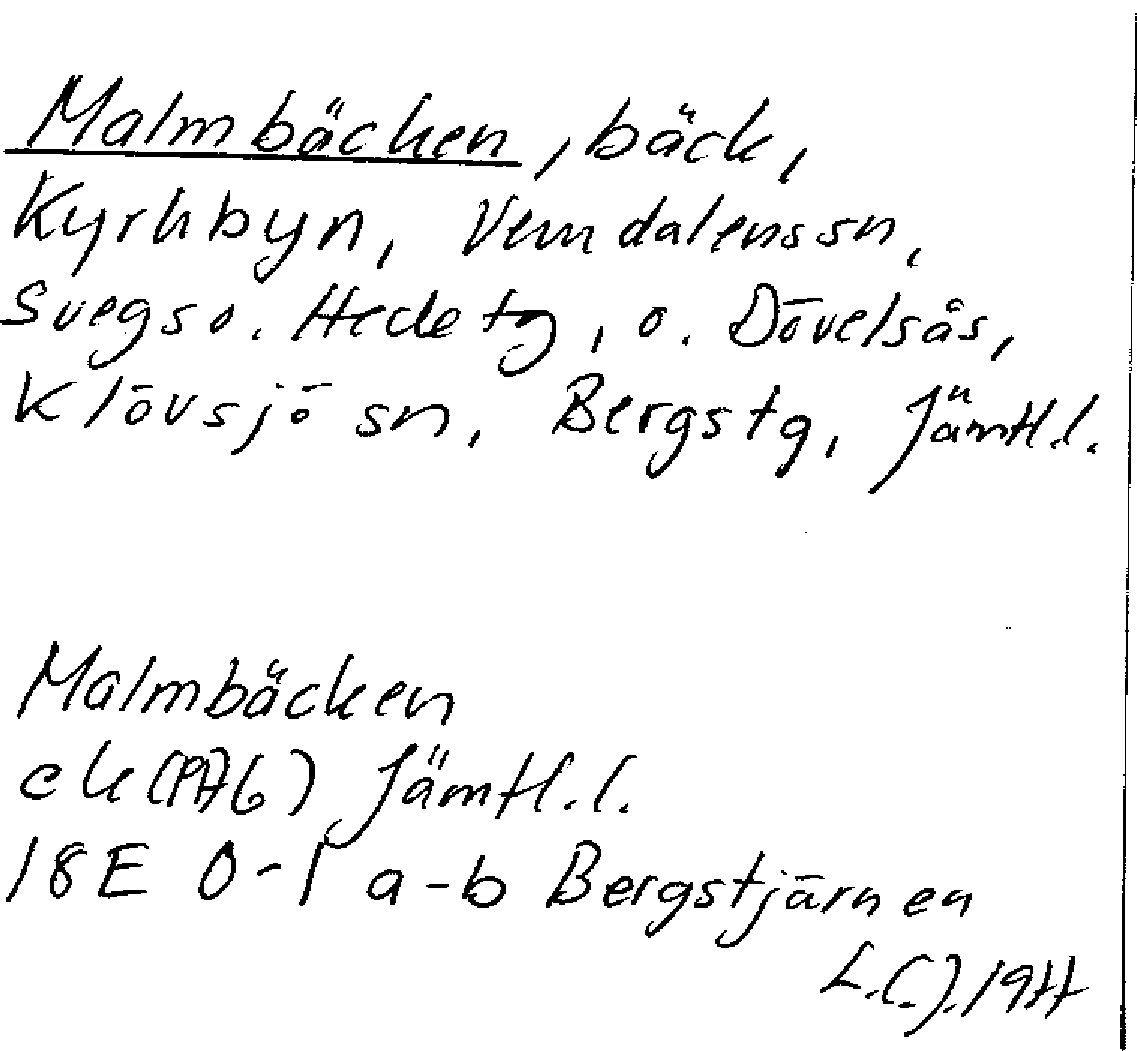 Malmbäcken, bäck,
Kyrkbyn, Vemdalens sn,
Svegs o. Hede tg, o. Dövelsås,
Klövsjö sn, Bergs tg, Jämtl. l.
Malmbäcken
ek (1976) Jämtl. l.
18E 0-1 a-b Bergstjärnen
L.C.J. 1977